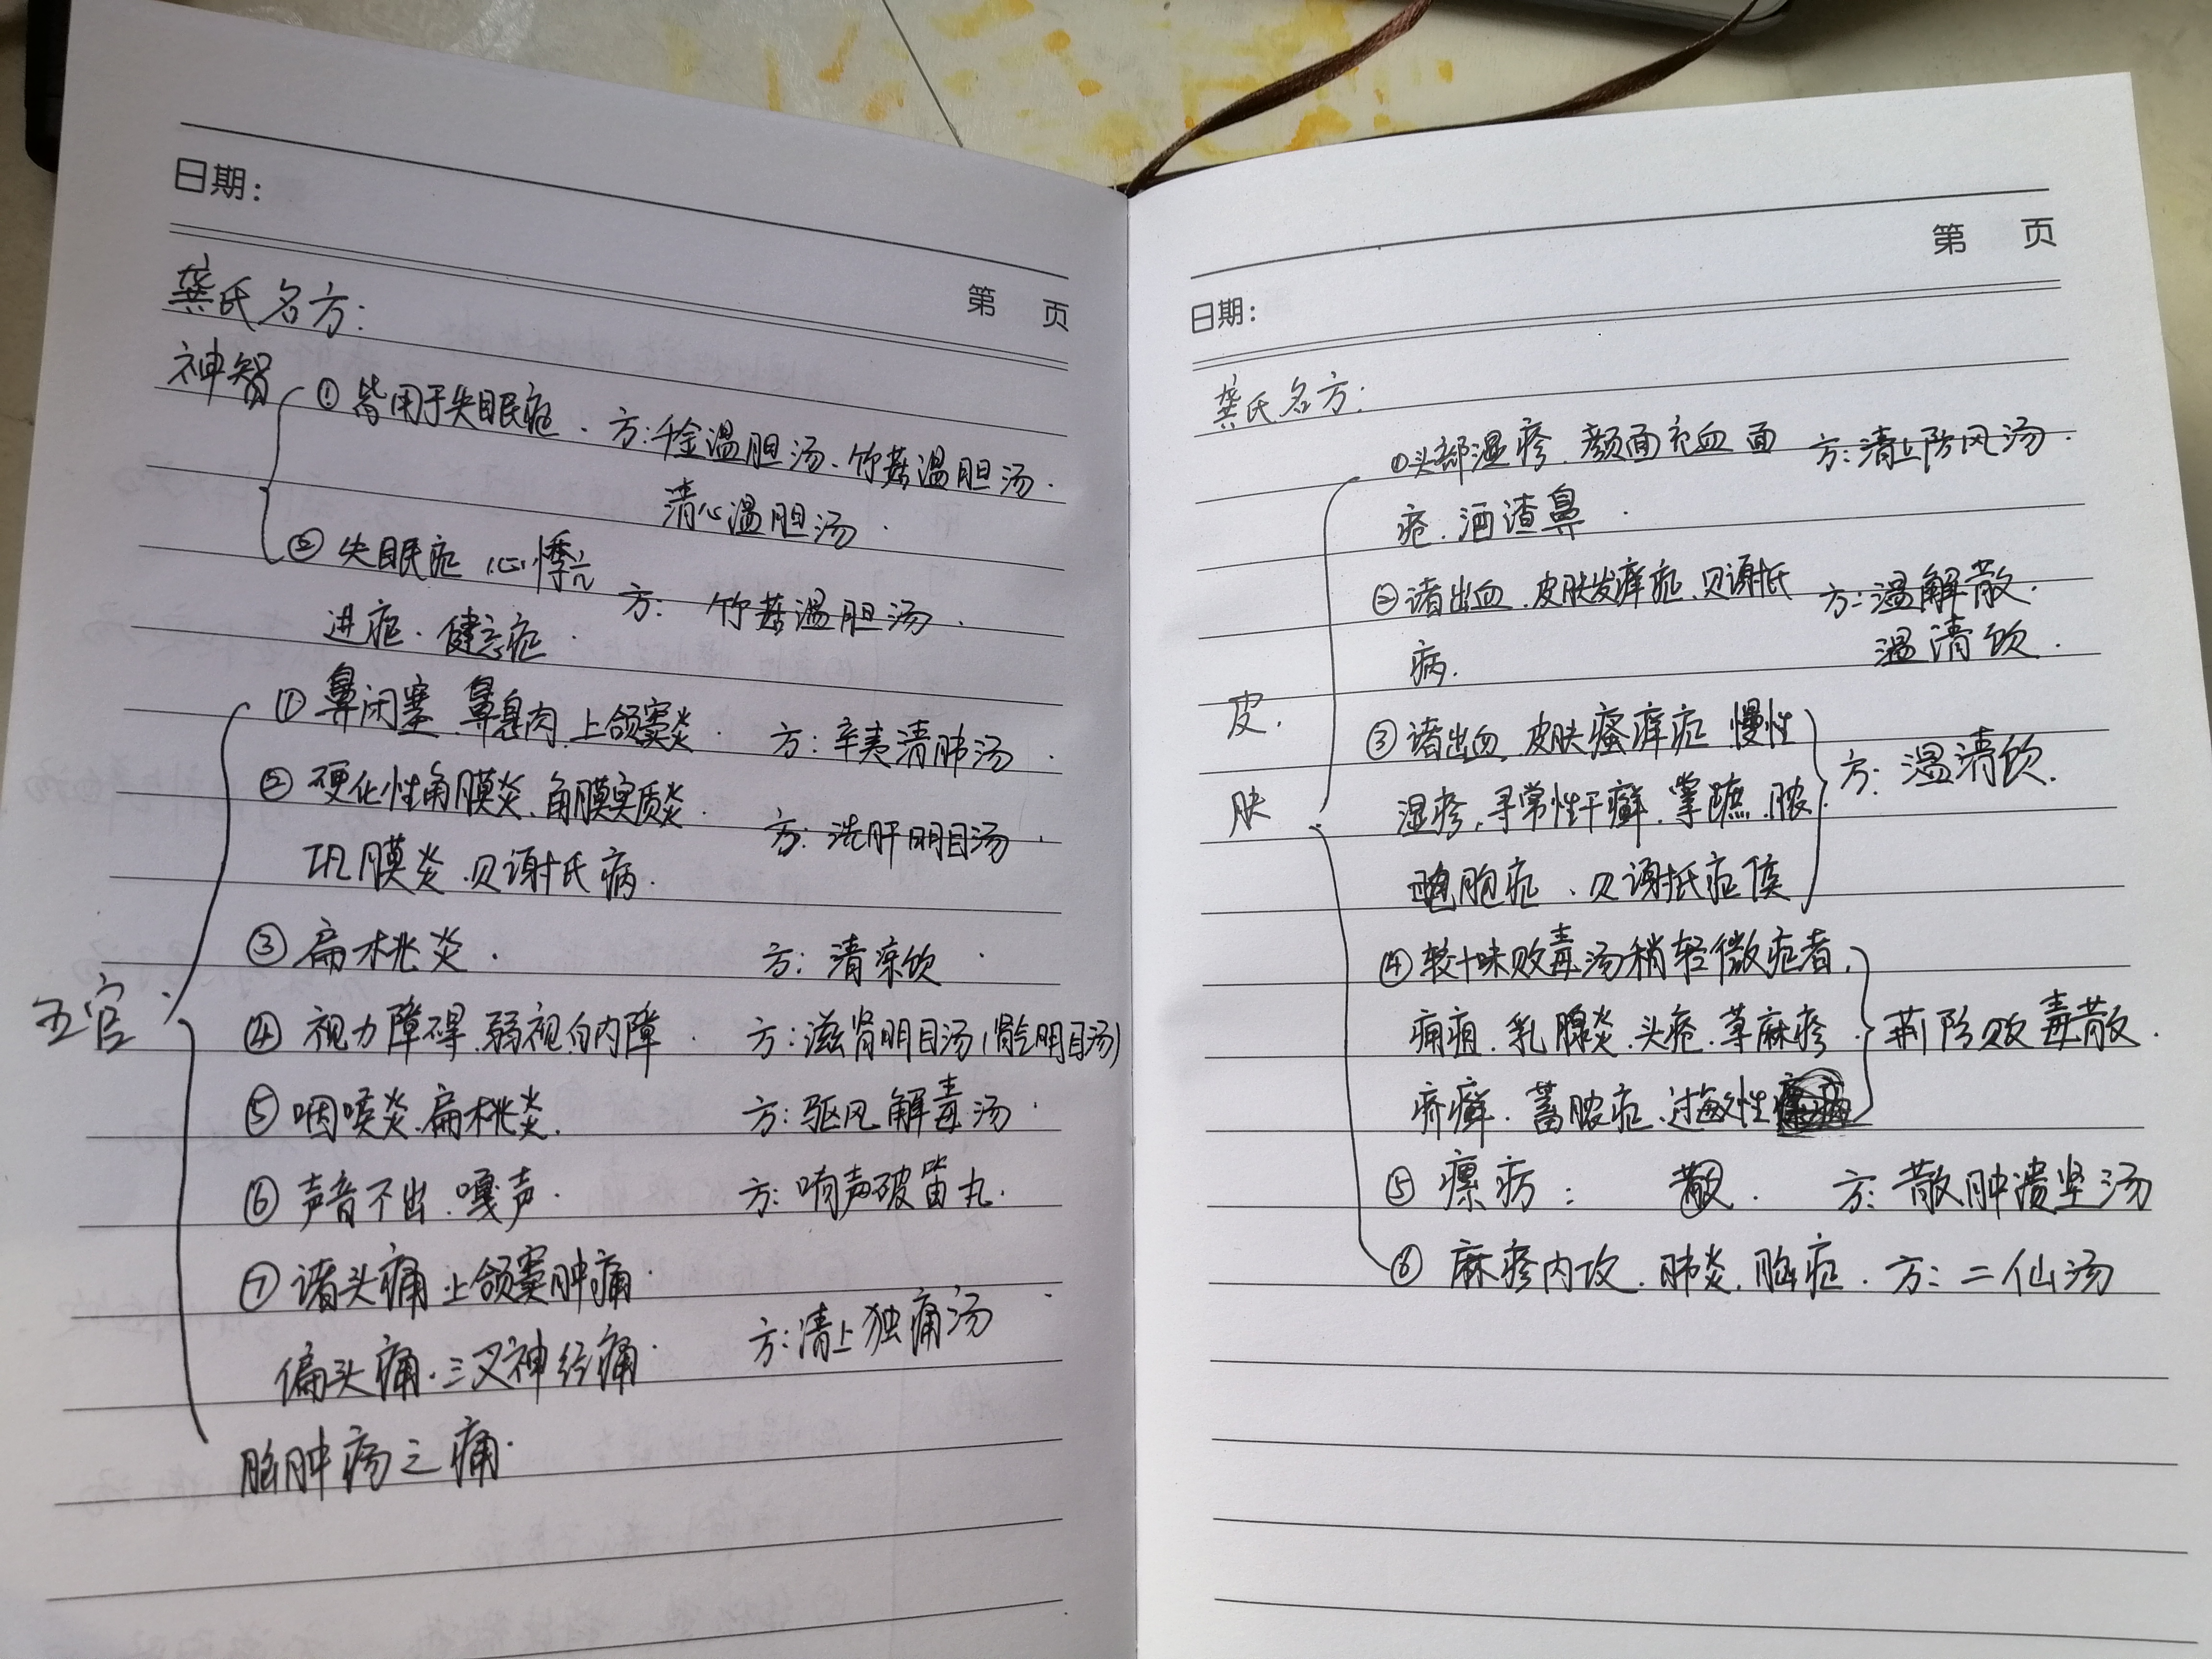 日期：
第 页
龚氏名方：
神智
① 皆用于失眠症． 方：千金温胆汤、竹茹温胆汤．
清心温胆汤．
② 失眠症 心悸亢
进症．健忘症． 方： 竹茹温胆汤．
五官
① 鼻闭塞 鼻息肉、上颌窦炎． 方：辛夷清肺汤．
② 硬化性角膜炎、角膜实质炎．
巩膜炎．贝谢氏病． 方：洗肝明目汤．
③ 扁桃炎． 方：清凉饮．
④ 视力障碍、弱视、白内障． 方：滋肾明目汤（肾气明目汤）
⑤ 咽喉炎、扁桃炎． 方：驱风解毒汤．
⑥ 声音不出．嘎声． 方：响声破笛丸．
⑦ 诸头痛 上颌窦肿痛．
偏头痛．三叉神经痛． 方：清上独痛汤
脑肿疡之痛．
第 页
日期：
龚氏名方：
皮．
肤
①头部湿疹、颜面充血 面 方：清上防风汤．
疮．酒渣鼻．
② 诸出血．皮肤发痒症、贝谢抵 方：温解散．
病． 温清饮．
③ 诸出血．皮肤瘙痒症 慢性
湿疹、寻常性干癣．掌蹠．脓 方：温清饮．
胞症．贝谢抵症候
④ 较十味败毒汤稍轻微症者．
痈疽．乳腺炎．头疮．荨麻疹． 荆防败毒散．
疥癣．蓄脓症．过敏性
⑤ 瘰疬： 散． 方：散肿溃坚汤
⑥ 麻疹内攻．肺炎．脑症． 方：二仙汤